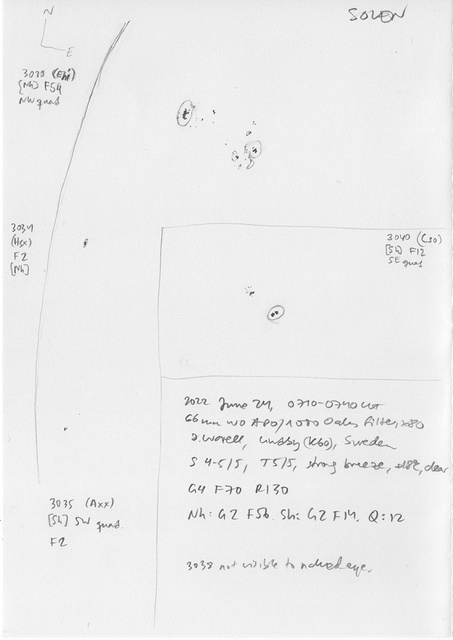 SOLEN
N
E
3038 (Ehi)
[Nh] F54
NW quad
3034
(Hsx)
F2
[Nh]
3040 (Cso)
[Sh] F12
SE quad
2022 June 24, 0710-0740 UT
66 mm WO APO, 1000 Oaks Filter, x80
J. Warell, Lindby (K60), Sweden
S 4-5/5, T5/5, strong breeze, +18C, clear
G4 F70 R130
Nh: G2 F56. Sh: G2 F14. Q: 12
3035 (Axx)
[Sh] SW quad
F2
3038 not visible to naked eye.